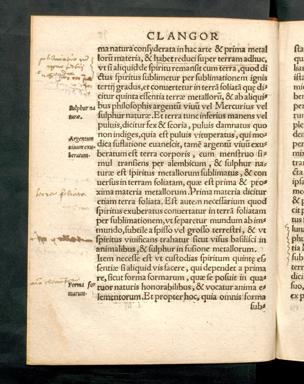 CLANGOR
ma natura consyderata in hac arte & prima metal
lorũ materia, & habet reduci super terram adhuc,
vt si aliquid de spiritu remansit cum terra, quod di
ctus spiritus sublimetur per sublimationem ignis
tertij gradus, et conuertetur in terrã foliatã quę di
citur quinta essentia terræ metallorũ, & ab aliqui⸗
bus philosophis argentũ viuũ vel Mercurius vel
sulphur naturæ. Et terra tunc inferius manens vel
puluis, dicitur fex & scoria, puluis damnatus quo
non indiges, quia est puluis viteperatus, qui mo⸗
dica sufflatione euanescit, tamẽ argentũ viuũ exu⸗
beratum est terra corporis, cum menstruo si⸗
mul transiens per alembicum, & sulphur na⸗
turæ est spiritus metallorum sublimatus, & con
uersus in terram foliatam, quæ est prima & pro
xima materia metallorum. Prima materia dicitur
etiam terra foliata. Est autem necessarium quod
spiritus exuberatus conuertatur in terrã foliatam
per sublimationem, vt separetur mundum ab im⸗
mundo, subtile a spisso vel grosso terrestri, & vt
spiritus viuificans trahatur sicut visus basilisci in
animalibus, & sulphur in fusione metallorum.
Item necesse est vt custodias spiritum quintę es⸗
sentię si aliquid vis facere, qui dependet a prima
re, sicut forma formarum, quæ se posuit in qua⸗
tuor naturis honorabilibus, & vocatur anima e⸗
lementorum. Et propter hoc, quia omnis forma
sub⸗
Sulphur na
turæ.
Argentum
viuum exu⸗
beratum.
terra foliata
Forma for
marum.